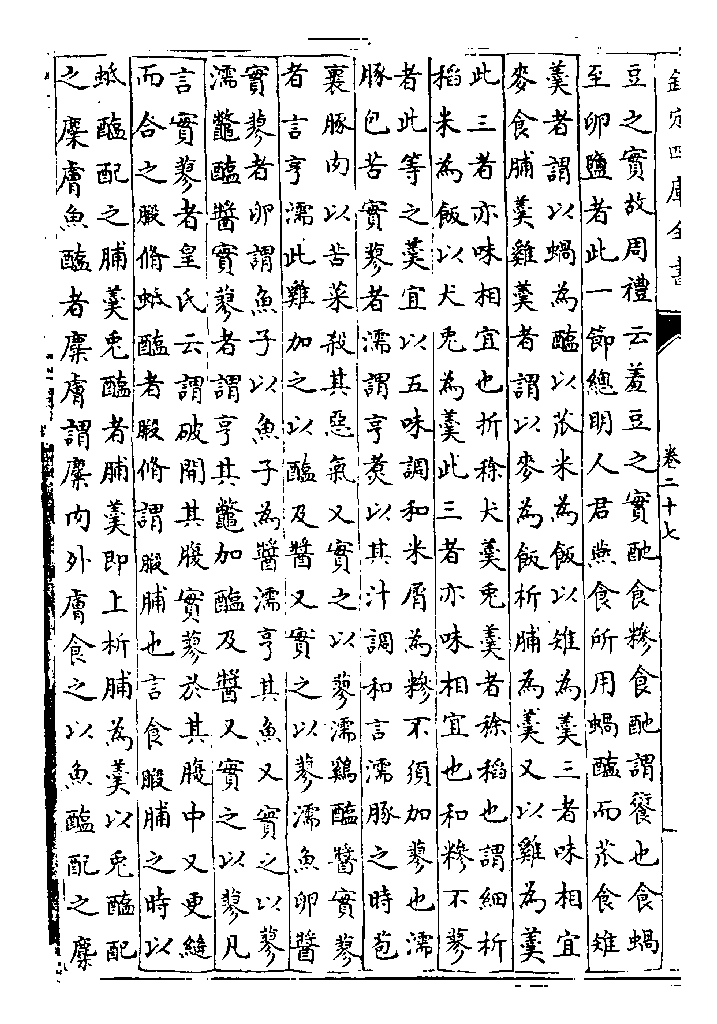 欽定四庫全書
卷二十七
豆之實故周禮云羞豆之實酏食糝食酏謂餐也食蝸
至卵鹽者此一節總明人君燕食所用蝸醢而苽食雉
羹者謂以蝸為醢以苽米為飯以雉為羹三者味相宜
麥食脯羹雞羹者謂以麥為飯析脯為羹又以雞為羹
此三者亦味相宜也折稌犬羹兔羹者稌稻也謂細析
稻米為飯以犬兔為羹此三者亦味相宜也和糝不蓼
者此等之羹宜以五味調和米屑為糝不須加蓼也濡
豚包苦實蓼者濡謂亨煑以其汁調和言濡豚之時苞
裹豚肉以苦菜殺其惡氣又實之以蓼濡鷄醢醬實蓼
者言亨濡此雞加之以醢及醬又實之以蓼濡魚卵醬
實蓼者卵謂魚子以魚子為醬濡亨其魚又實之以蓼
濡鼈醢醬實蓼者謂亨其鼈加醢及醬又實之以蓼凡
言實蓼者皇氏云謂破開其腹實蓼於其腹中又更縫
而合之腶脩蚳醢者腶脩謂腶脯也言食腶脯之時以
蚳醢配之脯羹兔醢者脯羹即上析脯為羹以兔醢配
之麋膚魚醢者麋膚謂麋肉外膚食之以魚醢配之麋